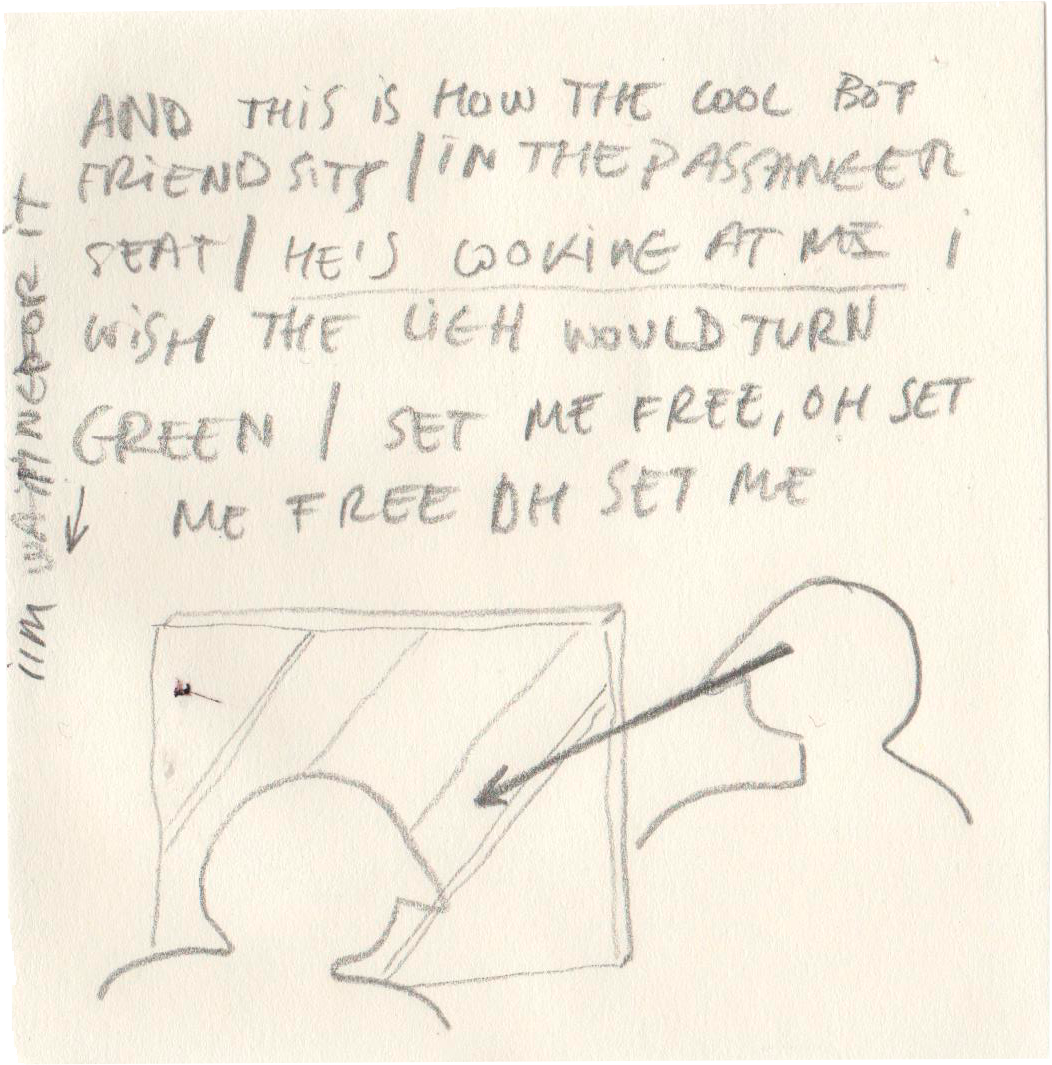 AND THIS IS HOW THE COOL BOY
FRIEND SITS / IN THE PASSANGER
SEAT / HE'S LOOKING AT ME I
WISH THE LIGH WOULD TURN
GREEN / SET ME FREE, OH SET
ME FREE OH SET ME
I'M WAITING FOR IT